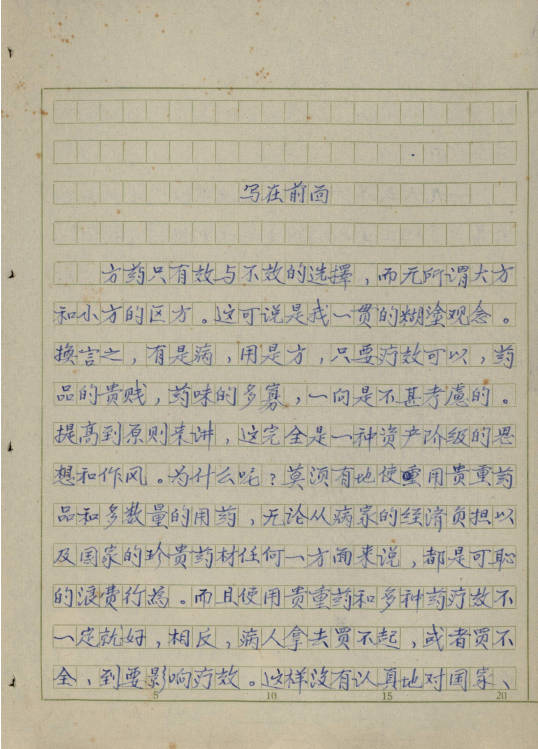 写在前面
方药只有效与不效的选择，而无所谓大方
和小方的区方。这可说是我一贯的糊塗观念。
换言之，有是病，用是方，只要疗效可以，药
品的贵贱，药味的多寡，一向是不甚考虑的。
提高到原则来讲，这完全是一种资产阶级的思
想和作风。为什么呢？莫须有地使用贵重药
品和多数量的用药，无论从病家的经济负担以
及国家的珍贵药材任何一方面来说，都是可恥
的浪费行為。而且使用贵重药和多种药疗效不
一定就好，相反，病人拿去買不起，或者買不
全、到要影响疗效。这样没有认真地对国家、
5 10 15 20